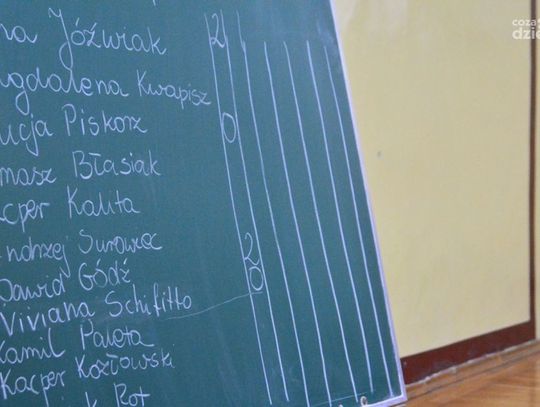 na Jóźwiak 2
gdalena Kwapisz
ucja Piskorz 0
masz Błasiak
cper Kalita
ndrzej Surowiec 2
Dawid Gódź 0
Viviana Schifitto
Kamil Paleta
Kacper Kozłowski
k Rot
coza
dzie